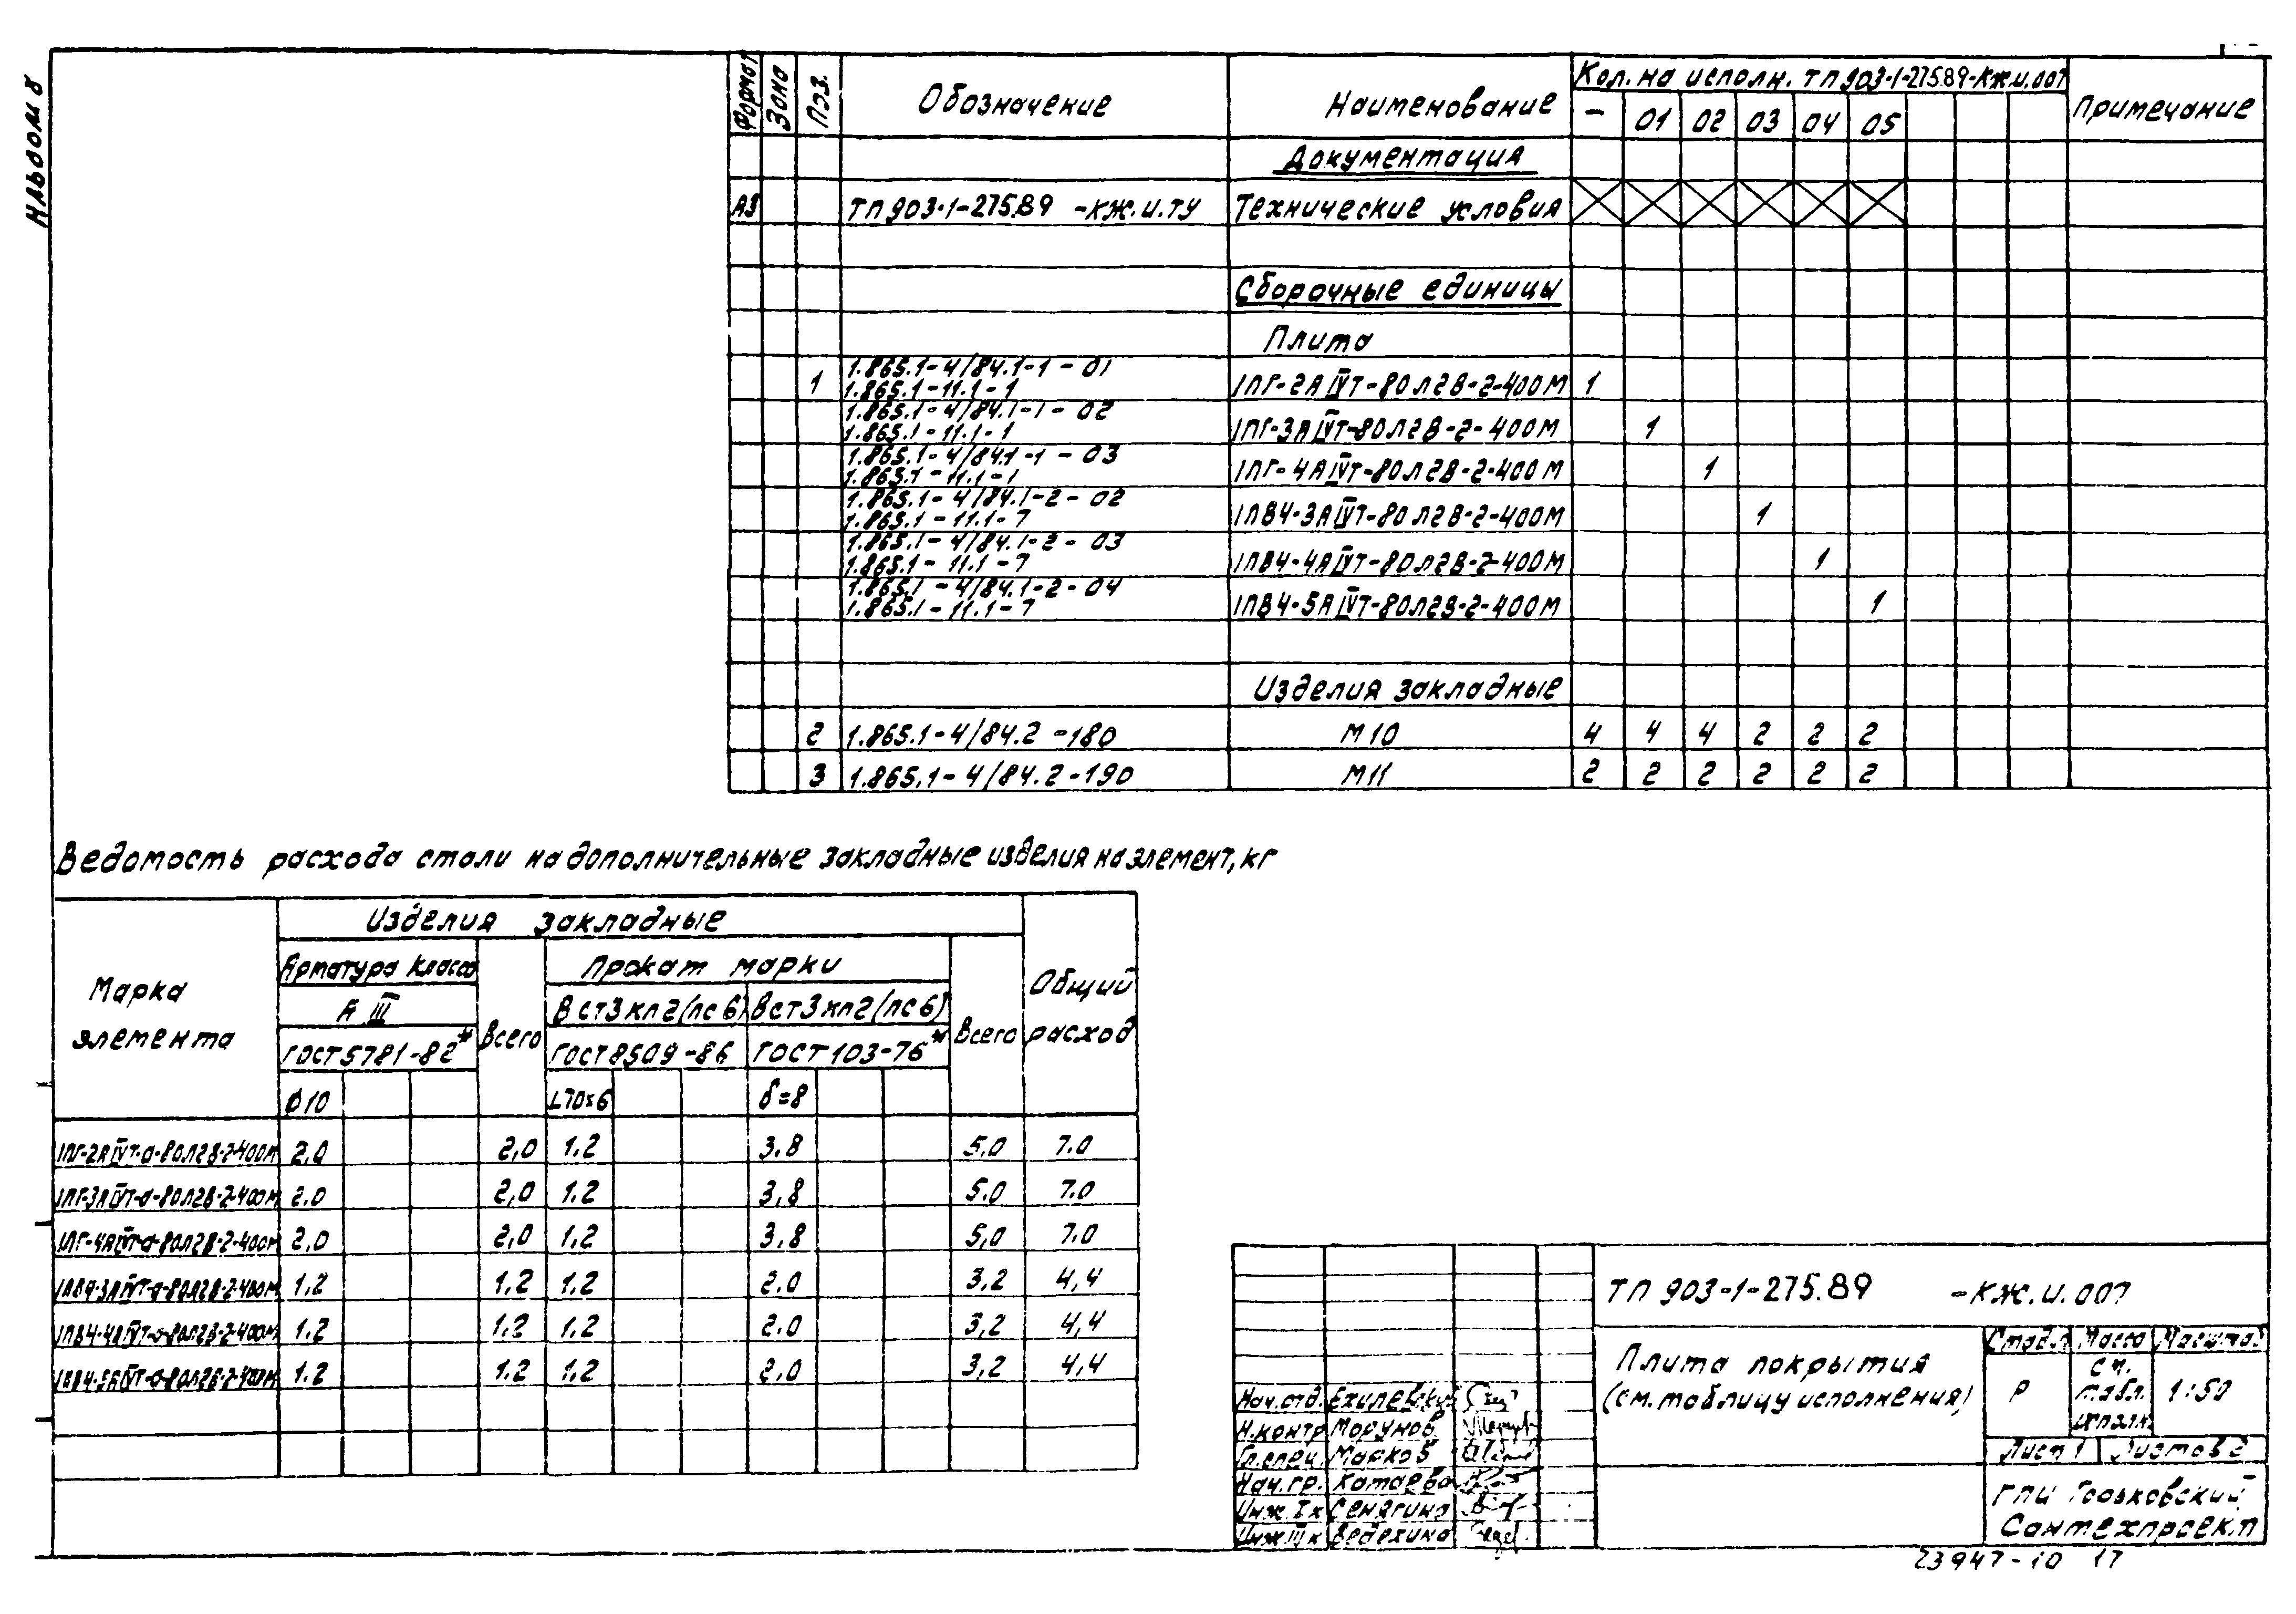 Альбом 8
Формат Зона Поз. Обозначение Наименование Кол. на исполн. ТП 903-1-275.89-КЖ.И.007 Примечание
– 01 02 03 04 05
Документация
А3 ТП 903-1-275.89 -КЖ.И.ТУ Технические условия
Сборочные единицы
Плита
1.865.1-4/84.1-1-01
1 1.865.1-11.1-1 1ПГ-2АIVТ-80Л2В-2-400М 1
1.865.1-4/84.1-1-02
1.865.1-11.1-1 1ПГ-3АIVТ-80Л2В-2-400М 1
1.865.1-4/84.1-1-03
1.865.1-11.1-1 1ПГ-4АIVТ-80Л2В-2-400М 1
1.865.1-4/84.1-2-02
1.865.1-11.1-7 1ПВ4-3АIVТ-80Л2В-2-400М 1
1.865.1-4/84.1-2-03
1.865.1-11.1-7 1ПВ4-4АIVТ-80Л2В-2-400М 1
1.865.1-4/84.1-2-04
1.865.1-11.1-7 1ПВ4-5АIVТ-80Л2В-2-400М 1
Изделия закладные
2 1.865.1-4/84.2-180 М10 4 4 4 2 2 2
3 1.865.1-4/84.2-190 М11 2 2 2 2 2 2
Ведомость расхода стали на дополнительные закладные изделия на элемент, кг
Марка элемента Изделия закладные Общий расход
Арматура класса Всего Прокат марки Всего
А III ВСт3кп2(пс6) ВСт3кп2(пс6)
ГОСТ 5781-82* ГОСТ 8509-86 ГОСТ 103-76*
Ф10 L70×6 δ=8
1ПГ-2АIVТ-а-80Л2В-2-400М 2,0 2,0 1.2 3.8 5.0 7.0
1ПГ-3АIVТ-а-80Л2В-2-400М 2.0 2,0 1.2 3,8 5.0 7.0
1ПГ-4АIVТ-а-80Л2В-2-400М 2,0 2,0 1.2 3.8 5,0 7.0
1ПВ4-3АIVТ-а-80Л2В-2-400М 1,2 1,2 1.2 2.0 3,2 4,4
1ПВ4-4АIVТ-а-80Л2В-2-400М 1.2 1.2 1.2 2.0 3,2 4,4
1ПВ4-5АIVТ-а-80Л2В-2-400М 1.2 1.2 1.2 2.0 3,2 4,4
ТП 903-1-275.89 -КЖ.И.007
Плита покрытия
(см. таблицу исполнения)
Стадия Масса Масштаб
Р см. табл. исполн. 1:50
Лист 1 Листов 2
ГПИ Горьковский
Сантехпроект
Нач. отд. Ехилевский
Н.контр Морунов
Гл.спец. Марков
Нач. гр. Катаева
Инж. I к Сенягина
Инж III к Ведехина
23947-10 17